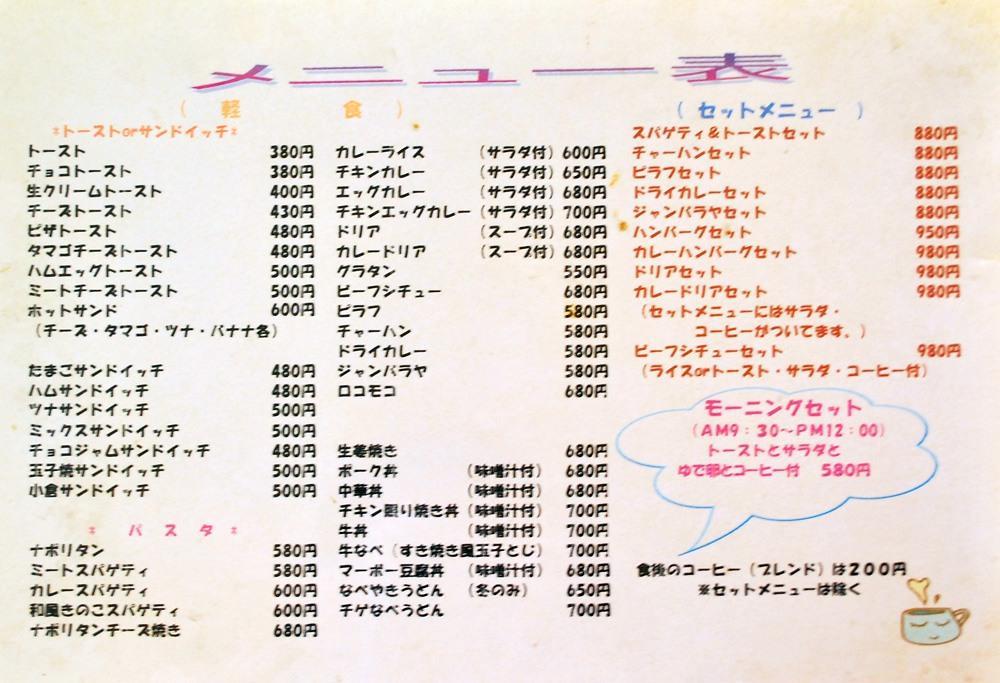 メニュー表
（ 軽 食 ）
*トーストorサンドイッチ*
トースト 380円
チョコトースト 380円
生クリームトースト 400円
チーズトースト 430円
ピザトースト 480円
タマゴチーズトースト 480円
ハムエッグトースト 500円
ミートチーズトースト 500円
ホットサンド 600円
（チーズ・タマゴ・ツナ・バナナ各）
たまごサンドイッチ 480円
ハムサンドイッチ 480円
ツナサンドイッチ 500円
ミックスサンドイッチ 500円
チョコジャムサンドイッチ 480円
玉子焼サンドイッチ 500円
小倉サンドイッチ 500円
* パスタ *
ナポリタン 580円
ミートスパゲティ 580円
カレースパゲティ 600円
和風きのこスパゲティ 600円
ナポリタンチーズ焼き 680円
カレーライス （サラダ付） 600円
チキンカレー （サラダ付） 650円
エッグカレー （サラダ付） 680円
チキンエッグカレー （サラダ付） 700円
ドリア （スープ付） 680円
カレードリア （スープ付） 680円
グラタン 550円
ビーフシチュー 680円
ピラフ 580円
チャーハン 580円
ドライカレー 580円
ジャンバラヤ 580円
ロコモコ 680円
生姜焼き 680円
ポーク丼 （味噌汁付） 680円
中華丼 （味噌汁付） 680円
チキン照り焼き丼 （味噌汁付） 700円
牛丼 （味噌汁付） 700円
牛なべ（すき焼き風玉子とじ） 700円
マーボー豆腐丼 （味噌汁付） 680円
なべやきうどん （冬のみ） 650円
チゲなべうどん 700円
（ セットメニュー ）
スパゲティ＆トーストセット 880円
チャーハンセット 880円
ピラフセット 880円
ドライカレーセット 880円
ジャンバラヤセット 880円
ハンバーグセット 950円
カレーハンバーグセット 980円
ドリアセット 980円
カレードリアセット 980円
（セットメニューにはサラダ・
コーヒーがついてます。）
ビーフシチューセット 980円
（ライスorトースト・サラダ・コーヒー付）
モーニングセット
（AM9：30～PM12：00）
トーストとサラダと
ゆで卵とコーヒー付 580円
食後のコーヒー（ブレンド）は200円
※セットメニューは除く